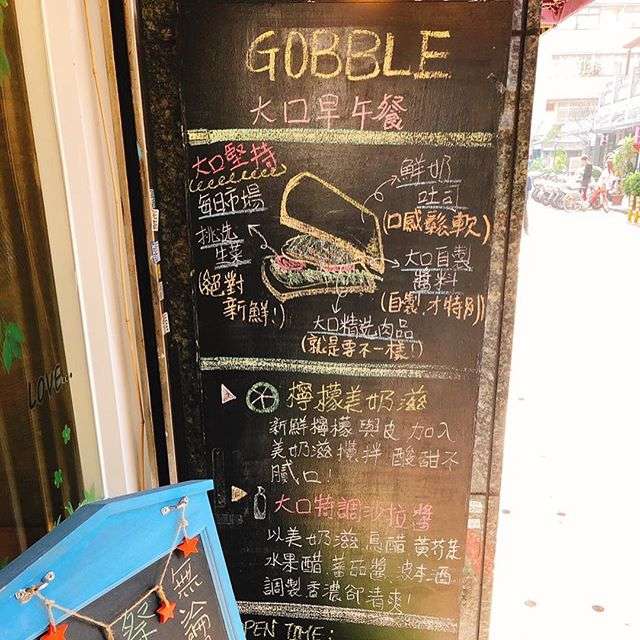 GOBBLE
大口早午餐
大口堅持
每日市場
挑選
生菜
(絕對
新鮮!)
鮮奶
吐司
(口感鬆軟)
大口自製
醬料
(自製,才特別)
大口精选肉品
(就是要不一樣!)
檸檬美奶滋
新鮮檸檬與皮加入
美奶滋攪拌 酸甜不
膩口!
大口特調沙拉醬
以美奶滋 烏醋 黃芥茉
水果醋 蕃茄醬
調製香濃卻清爽!
PEN TIME:
LOVE...
無論